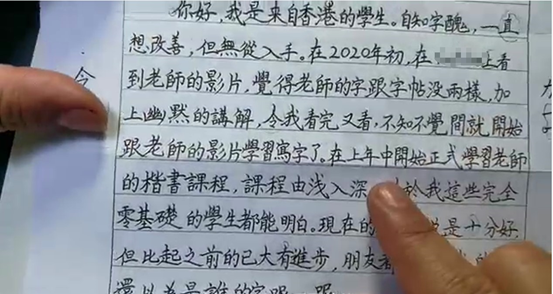 你好,我是來自香港的學生。自知字醜,一直
想改善,但無從入手。在2020年初,在 上看
到老師的影片,覺得老師的字跟字帖没兩樣,加
上幽默的講解,令我看完又看,不知不覺間就開始
跟老師的影片學習寫字了。在上年中開始正式學習老師
的楷書課程,課程由浅入深, 於我這些完全
零基礎的學生都能明白。現在的 是十分好
但比起之前的已大有進步,朋友都
還以為是誰的字呢
令